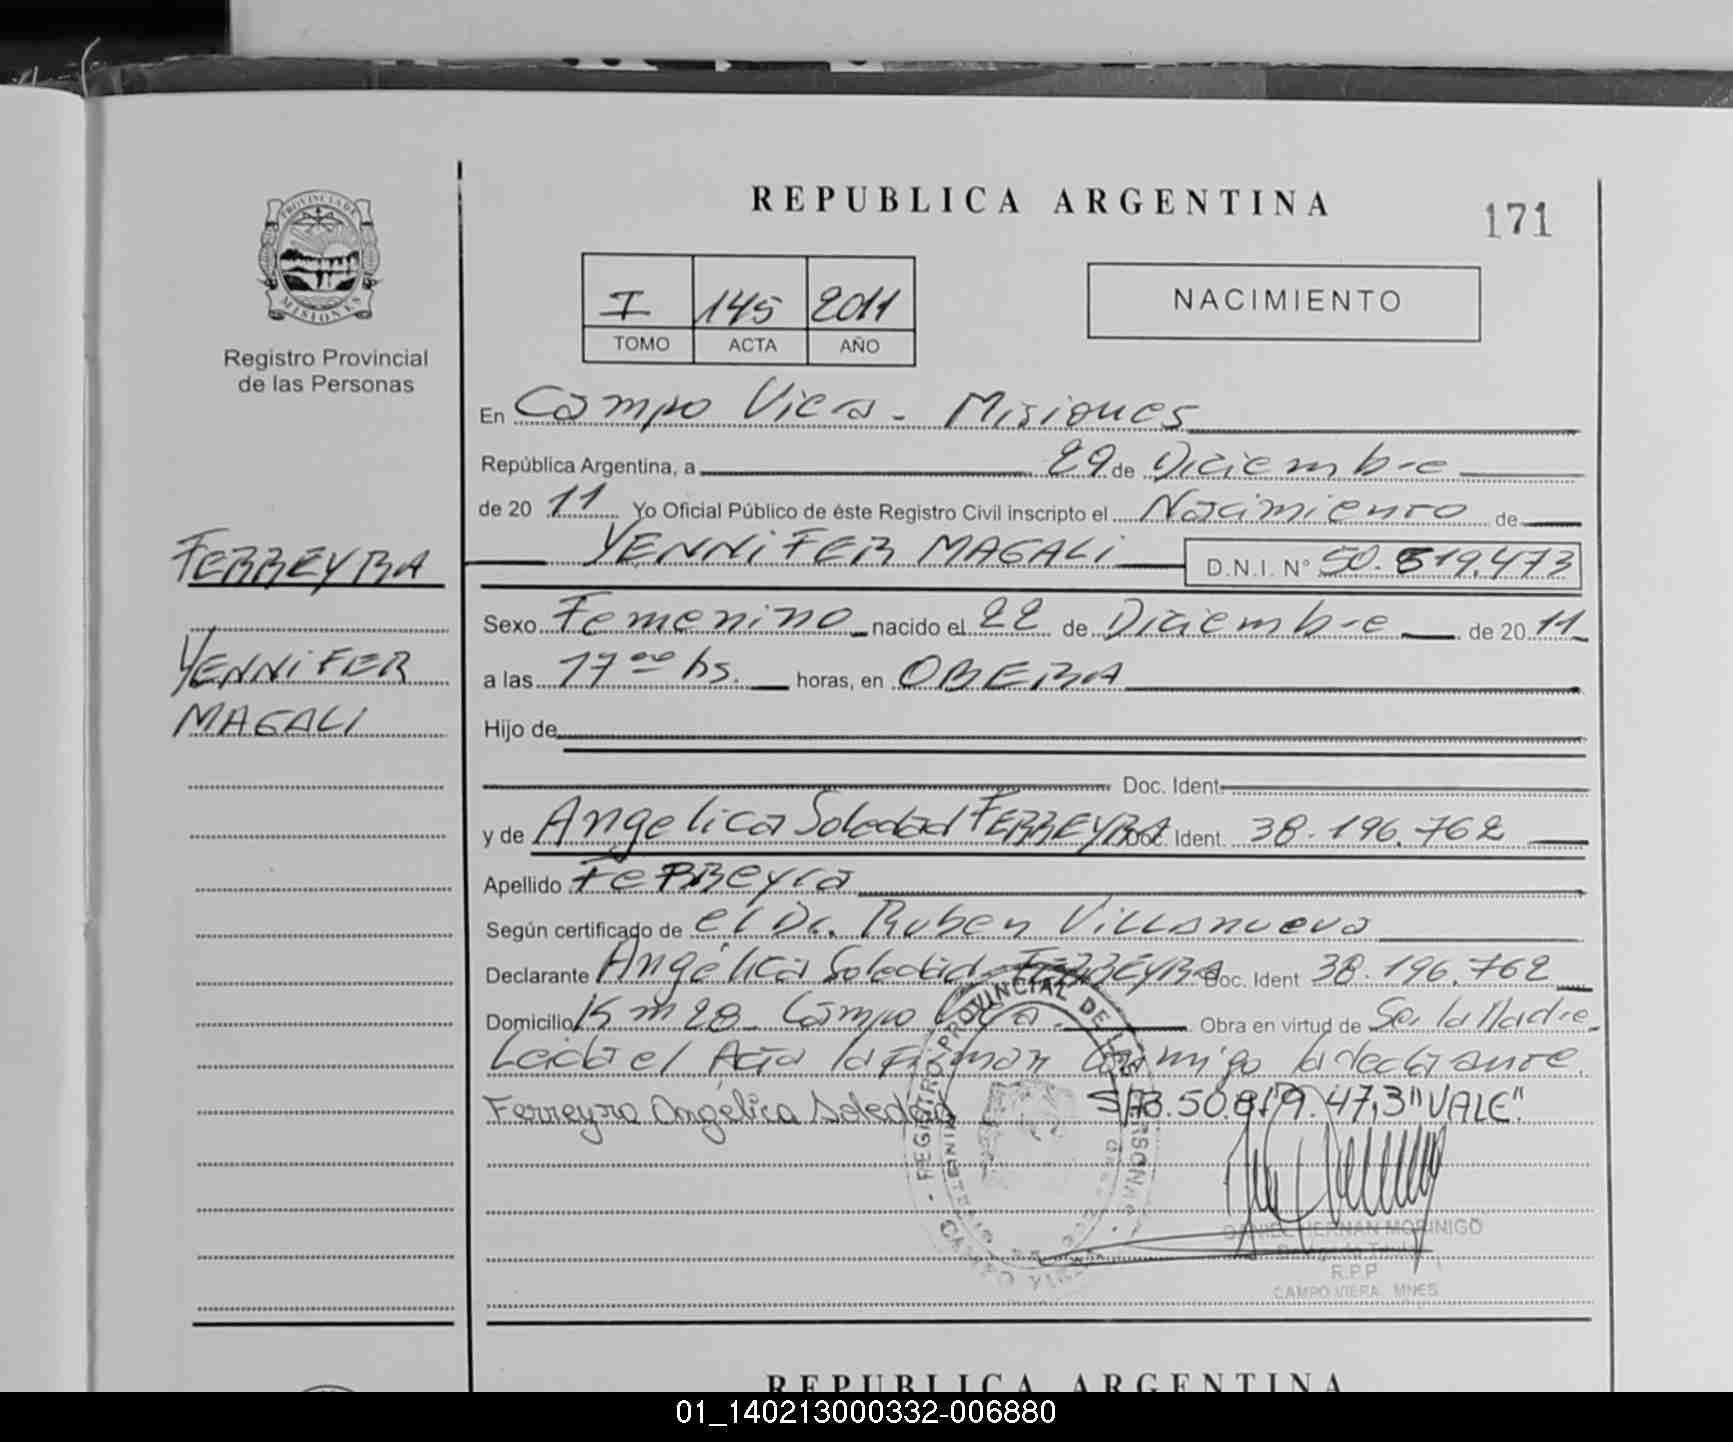 REPUBLICA ARGENTINA
171
PROVINCIA DE
MISIONES
Registro Provincial
de las Personas
I 145 2011
TOMO ACTA AÑO
NACIMIENTO
En Campo Viera - Misiones
República Argentina, a 29 de Diciembre
de 20 11 Yo Oficial Público de éste Registro Civil inscripto el Nacimiento de
YENNIFER MAGALI D.N.I. N° 50.819.473
FERREYRA
YENNIFER
MAGALI
Sexo Femenino nacido el 22 de Diciembre de 20 11
a las 17 00 hs. horas, en OBERA
Hijo de
Doc. Ident.
y de Angelica Soledad FERREYRA Doc. Ident. 38.196.762
Apellido Ferreyra
Según certificado de el Dr. Ruben Villanueva
Declarante Angélica Soledad FERREYRA Doc. Ident 38.196.762
Domicilio Km 28 - Campo Viera. Obra en virtud de Ser la Madre
Leida el Acta la Firman Conmigo la declarante.
Ferreyra Angelica Soledad S/R 3.50.819.473 "VALE".
REGISTRO PROVINCIAL DE LAS PERSONAS
CAMPO VIERA
DANIEL HERNAN MORINIGO
R.P.P
CAMPO VIERA MNES
REPUBLICA ARGENTINA
01_140213000332-006880